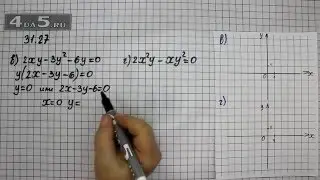 4DA5.RU
31.27
в) 2xy-3y²-6y=0
y(2x-3y-6)=0
y=0 или 2x-3y-6=0
x=0 y=
г) 2x²y-xy²=0
в)
г)